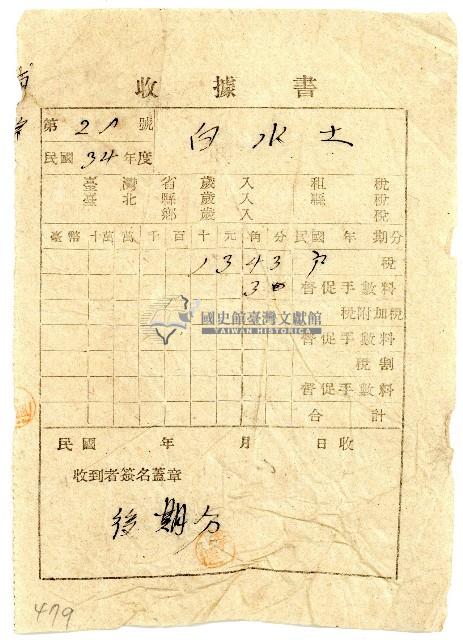 收據書
第 21 號
白水土
民國 34 年度
臺灣省歲入租稅
臺北縣歲入縣稅
鄉歲入稅
臺幣 十萬 萬 千 百 十 元 角 分 民國 年 期分
1 3 4 3 戶 稅
3 0 督促手數料
稅附加稅
督促手數料
稅割
督促手數料
合計
國史館臺灣文獻館
TAIWAN HISTORICA
民國 年 月 日收
收到者簽名蓋章
後期分
479